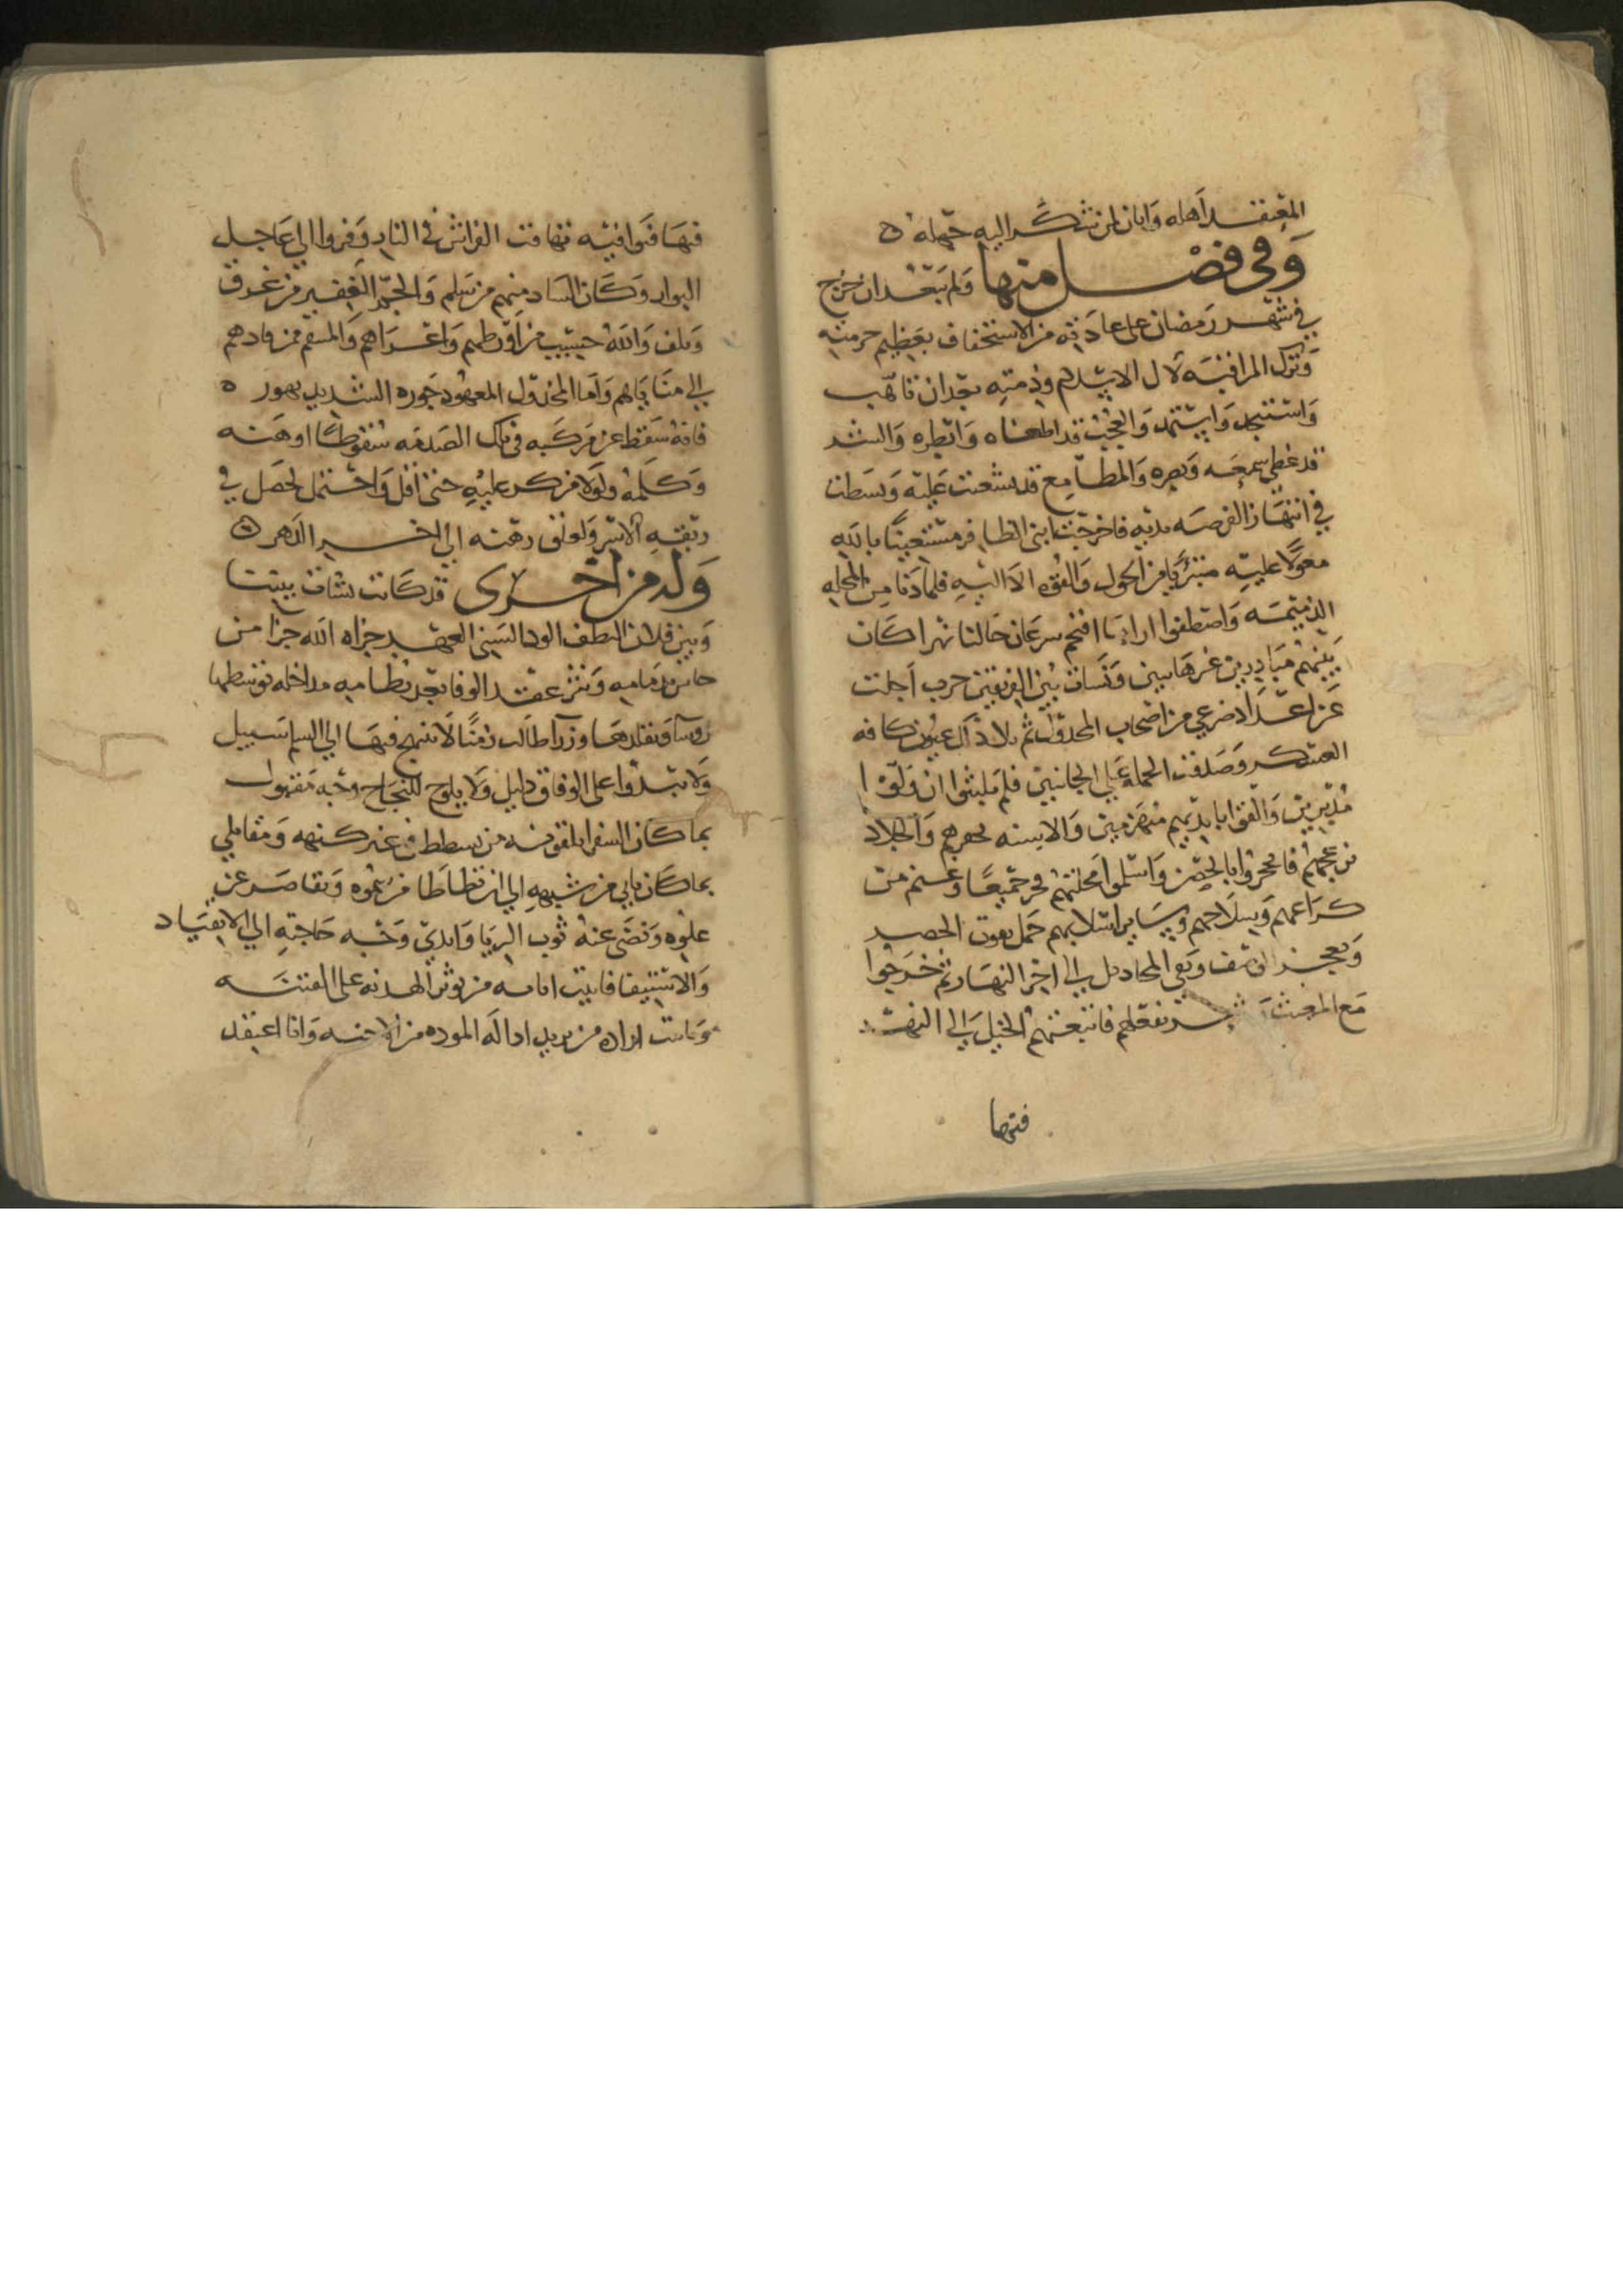 المعتقد اهله وابان لمن تشكر اليه جهله
وفي فصل منها ولم يبعد ان خرج
في شهر رمضان على عادته من الاستخفاف بعظيم حرمته
وترك المراقبة لال الاسلام وذمته بعد ان تاهب
واستنجد واستمد والعجب قد اطغاه وابطره والشر
قد غطى سمعه وبصره والمطامع قد شعبت عليه وبسطت
في انتهاز الفرصة يديه فاخرجت ابني الظافر مستعينا بالله
معولا عليه متبريا من الحول والقوه الا اليه فلما دنا من المحله
الذميمه واصطفوا اراءنا اقتحم سرعان خالنا نهرا كان
بينهم مبادرين غير هايبين ونشات بين الفريقين حرب اجلت
عن اعداد صرعى من اصحاب المخذول ثم تلاذ ال عيون كافه
العسكر وصدقت الحمله على الجانبين فلم يلبثوا ان ولوا
مدبرين والقوا بايديهم منهزمين والاسنه تحفزهم والجلاد
يزعجهم فانحجزوا بالحصن واسلموا محلتهم فحر جميعا وغنم من
كراعهم وسلاحهم وساير اسلابهم حمل يفوت الحصر
ويعجز الوصف وبقى المخاذيل الى اخر النهار ثم خرجوا
مع المغيث فانبعثهم الخيل الى النهر
فتها
فيها فتوافيه تهافت الفراش في النار وفروا الى عاجل
البوار وكان الشاذ منهم من سلم والجم الغفير من غرق
وتلف والله حسيب من اورطهم واغراهم والمنتقم ممن قادهم
الى مناياهم واما المخذول المعهود جوره الشديد تهوره
فانه سقط عن مركبه في تلك الصدمه سقوطا اوهنه
وكلمه ولولا من كر عليه حتى اقل واحتمل لحصل في
ربقه الاسر ولعلق رهنه الى اخر الدهر
وله من اخرى قد كانت نشات بيننا
وبين فلان اللطف الود السني العهد جزاه الله جزا من
خاس بذمامه ونثر عقد الوفا بعد نظامه مداخله توسطها
روسا وتقلدها وزرا طالت زمنا لا تنهج فيها الى السلم سبيل
ولا يبدوا على الوفاق دليل ولا يلوح للنجاح وجه مقبول
بما كان السفرا يلقونه من تسططه في غير كنهه ومقابلي
بما كان ياتي من شبهه الى ان تطاطا من سموه وتقاصر عن
علوه ونضى عنه ثوب الريا وابدى وجه حاجته الى الانقياد
والاستيفا فانبت انابه من يوثر الهدنه على الفتنه
وثابت اراده من يريد اداله الموده من الاحنه وانا اعتقد